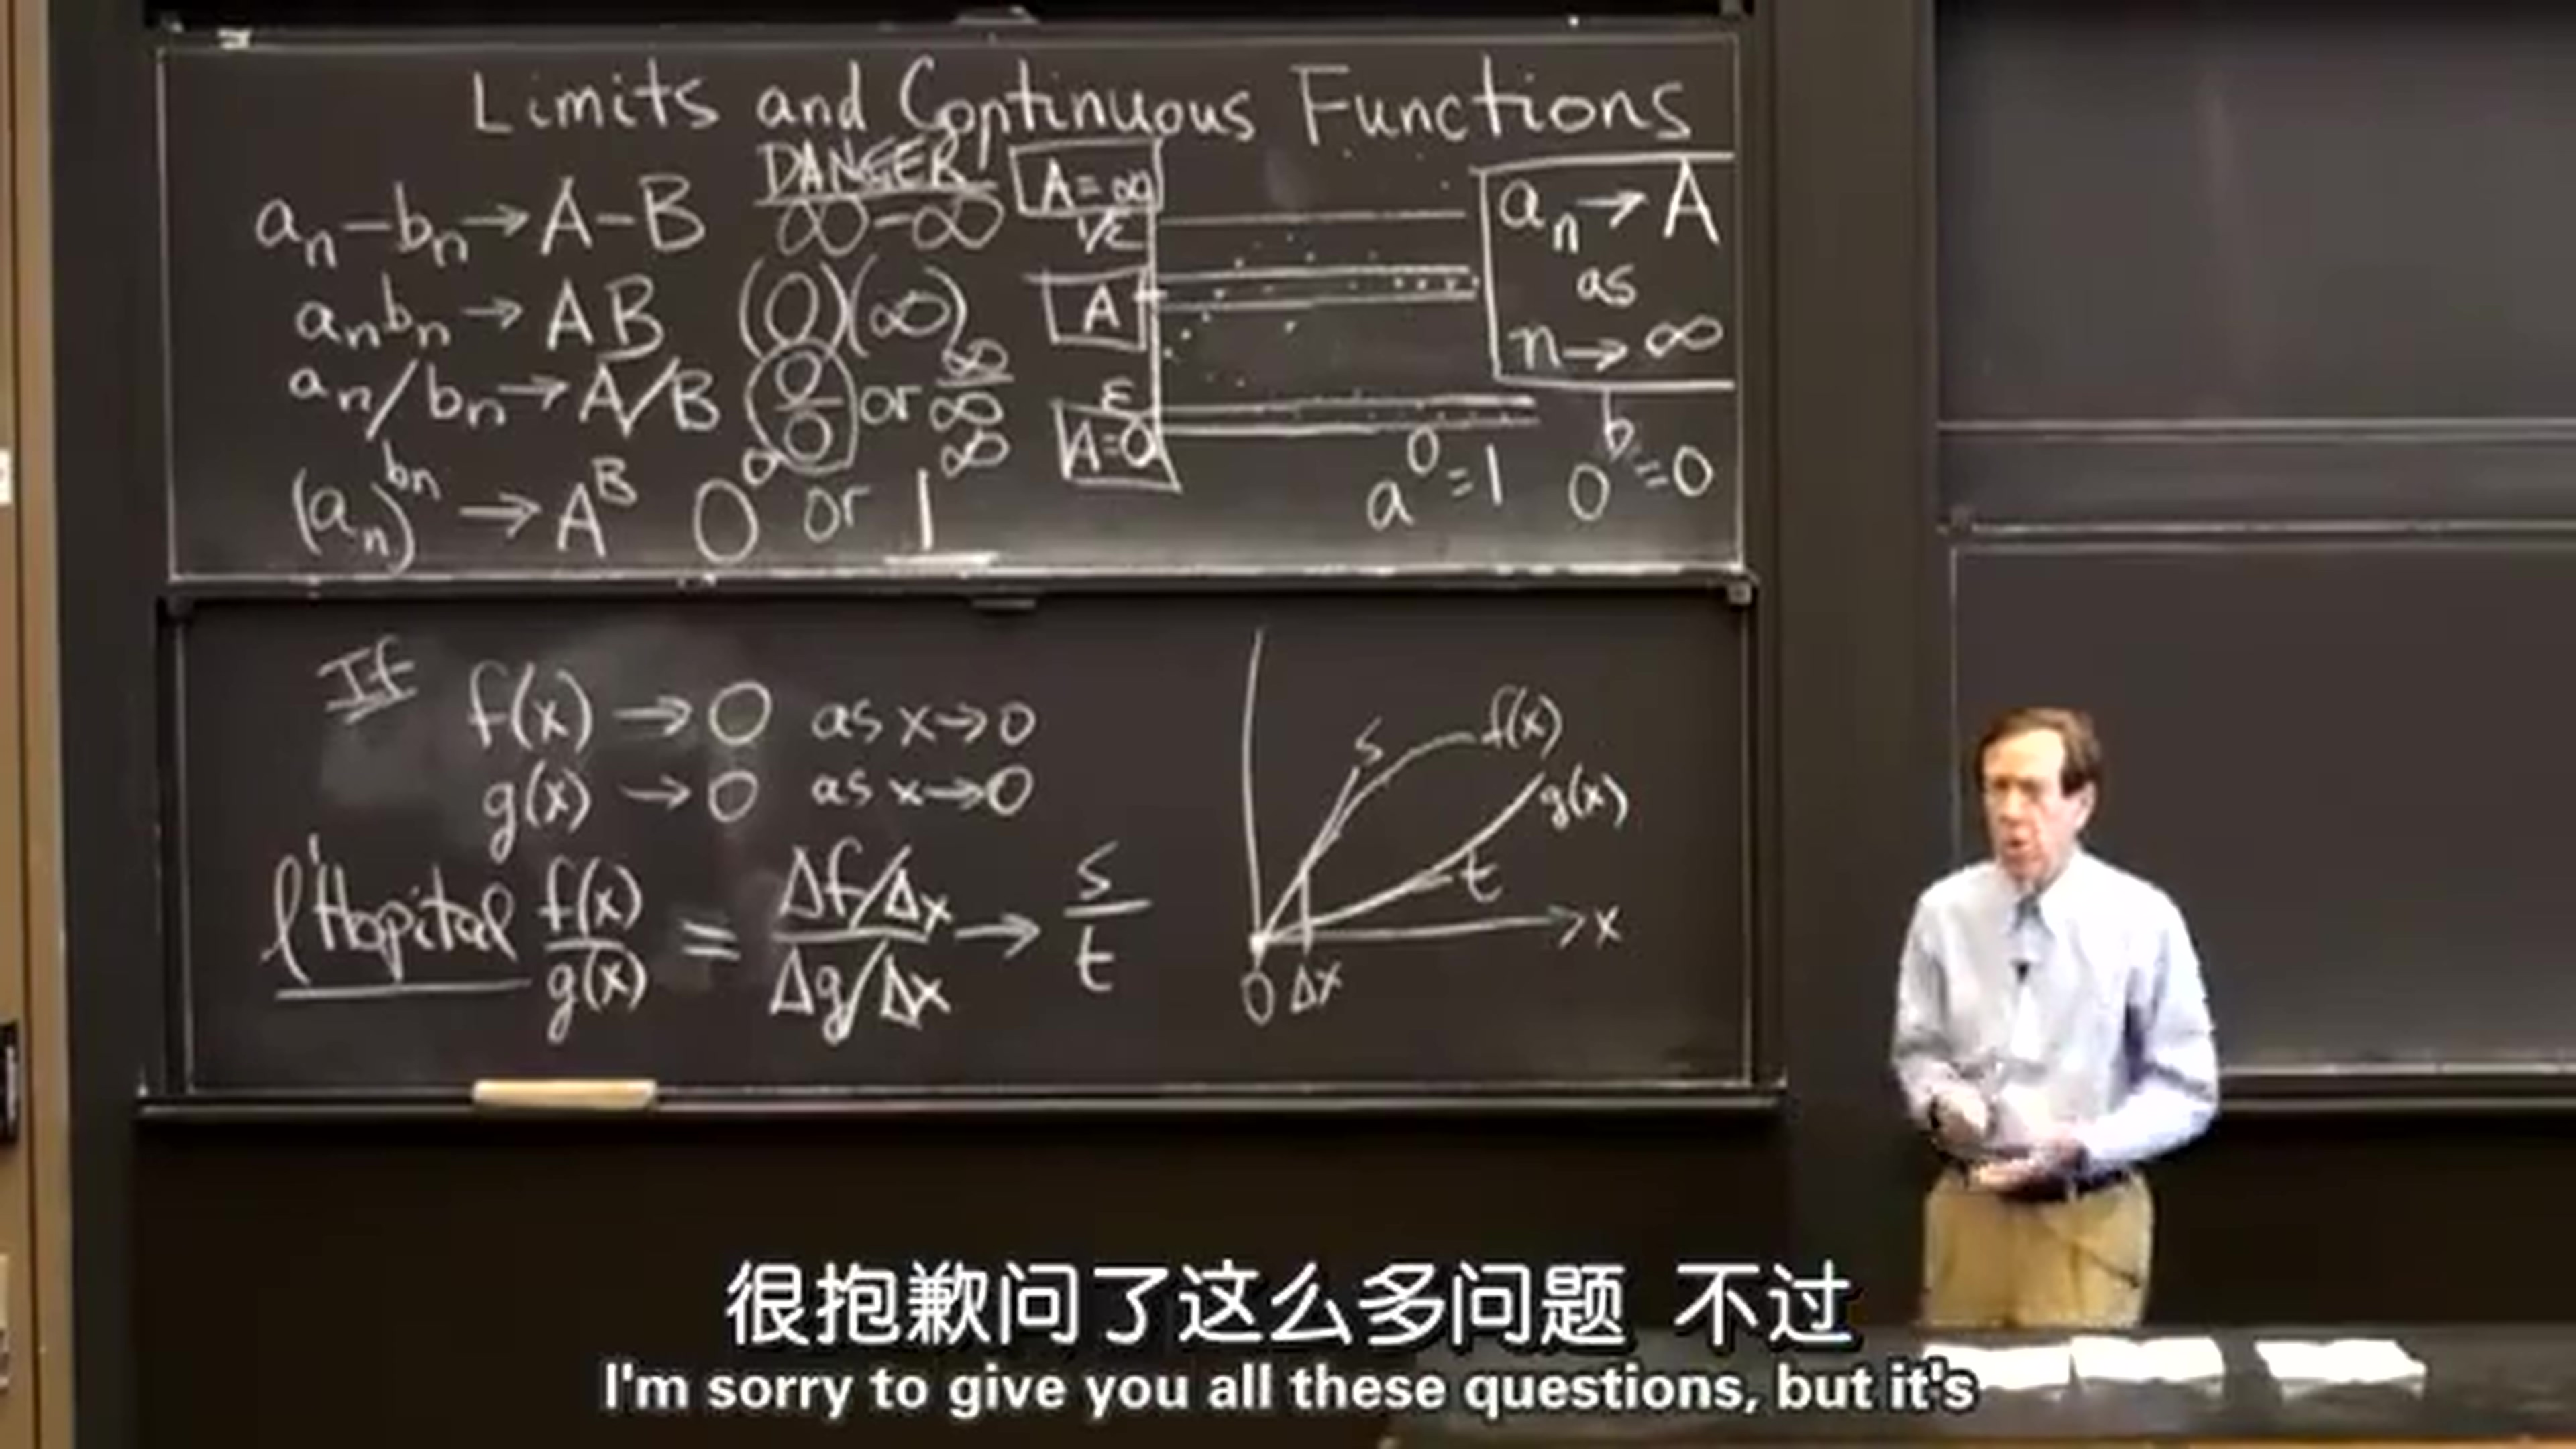 Limits and Continuous Functions
DANGER
aₙ-bₙ→A-B ∞-∞
aₙbₙ→AB (0)(∞)
aₙ/bₙ→A/B 0/0 or ∞/∞
(aₙ)^bₙ→A^B 0⁰ or 1^∞
A=∞
1/ε
A
ε
A=0
aₙ→A
as
n→∞
a⁰=1 0^b=0
If f(x)→0 as x→0
g(x)→0 as x→0
l'Hopital f(x)/g(x) = Δf/Δx / Δg/Δx → s/t
s f(x)
g(x)
t
x
0 Δx
很抱歉问了这么多问题 不过
I'm sorry to give you all these questions, but it's